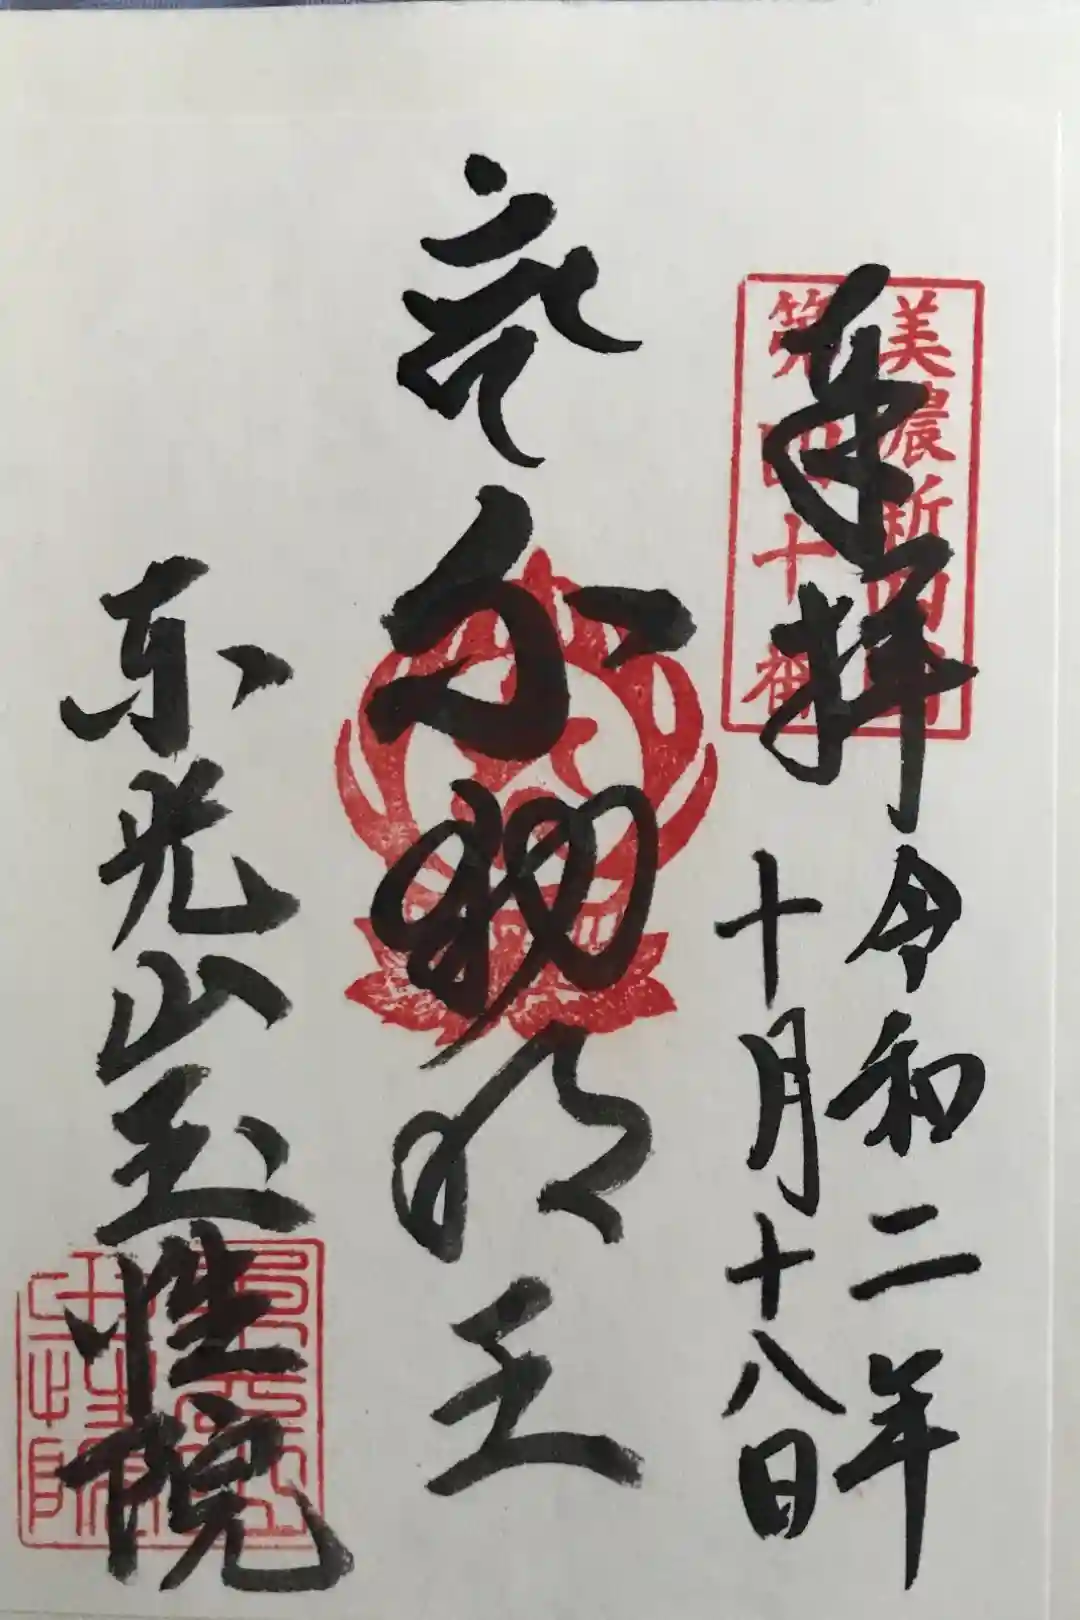 美濃新四国
第四十番
奉拝
令和二年
十月十八日
不動明王
東光山玉性院